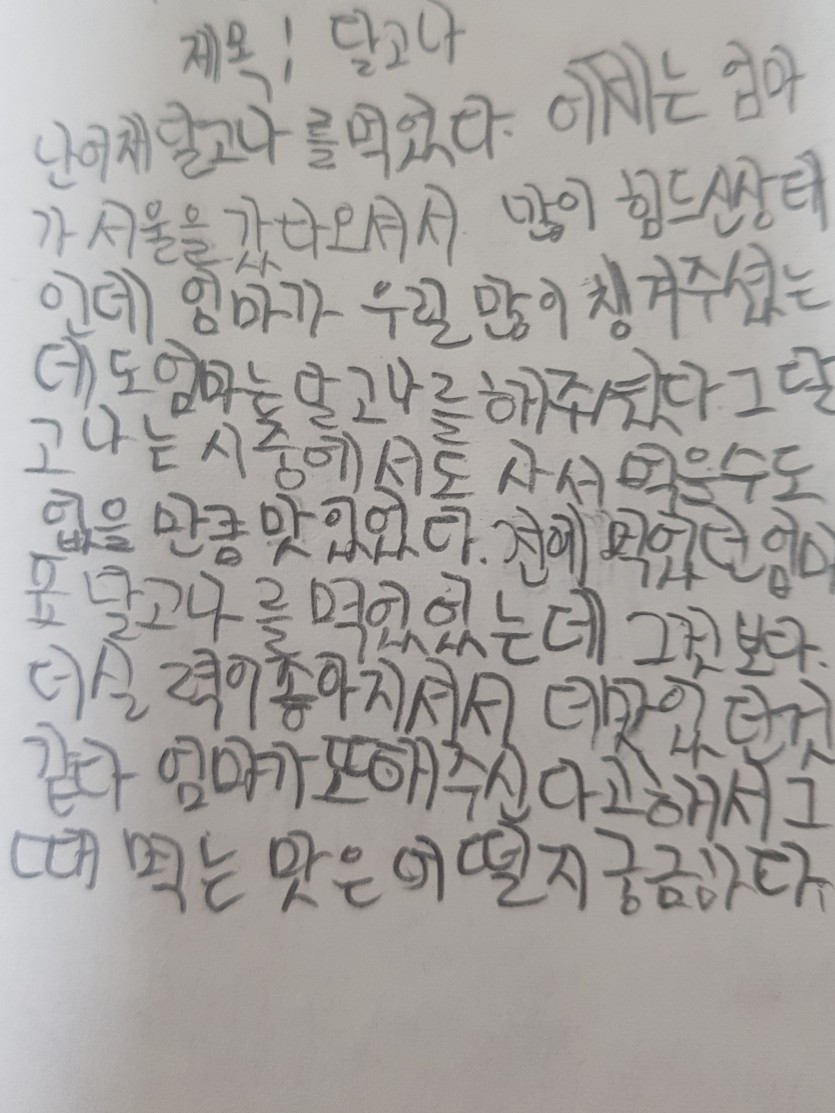 제목! 달고나
난어제달고나를먹었다. 어제는 엄마
가 서울을 갔다오셔서 많이 힘드신상태
인데 엄마가 우릴 많이 챙겨주셨는
데도엄마는달고나를해주셨다 그 달
고나는 시중에서도 사서 먹을수도
없을 만큼 맛있었다. 전에 먹었던 엄마
표 달고나를 먹었었는데 그것보다.
더실력이좋아지셔서 더맛있던것
같다 엄마가또해주신다고해서 그
때 먹는 맛은 어떨지 궁금하다.